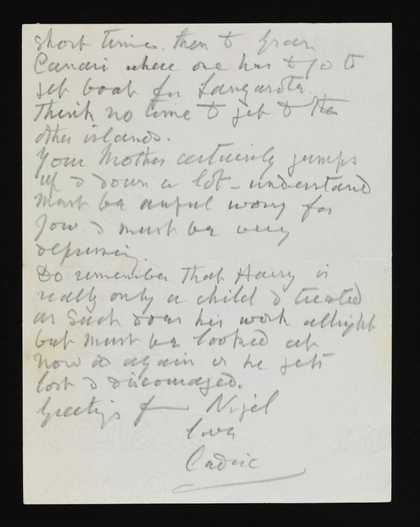 short time. then to Gran
Canari where one has to go to
get boat for Lanzarote.
Think no time to get to the
other islands.
Your Mother certainly jumps
up & down a lot - understand
must be awful worry for
you & must be very
depressing.
Do remember that Harry is
really only a child & treated
as such does his work allright
but must be looked at
now & again or he gets
lost & discouraged.
Greetings from Nigel
love
Cedric